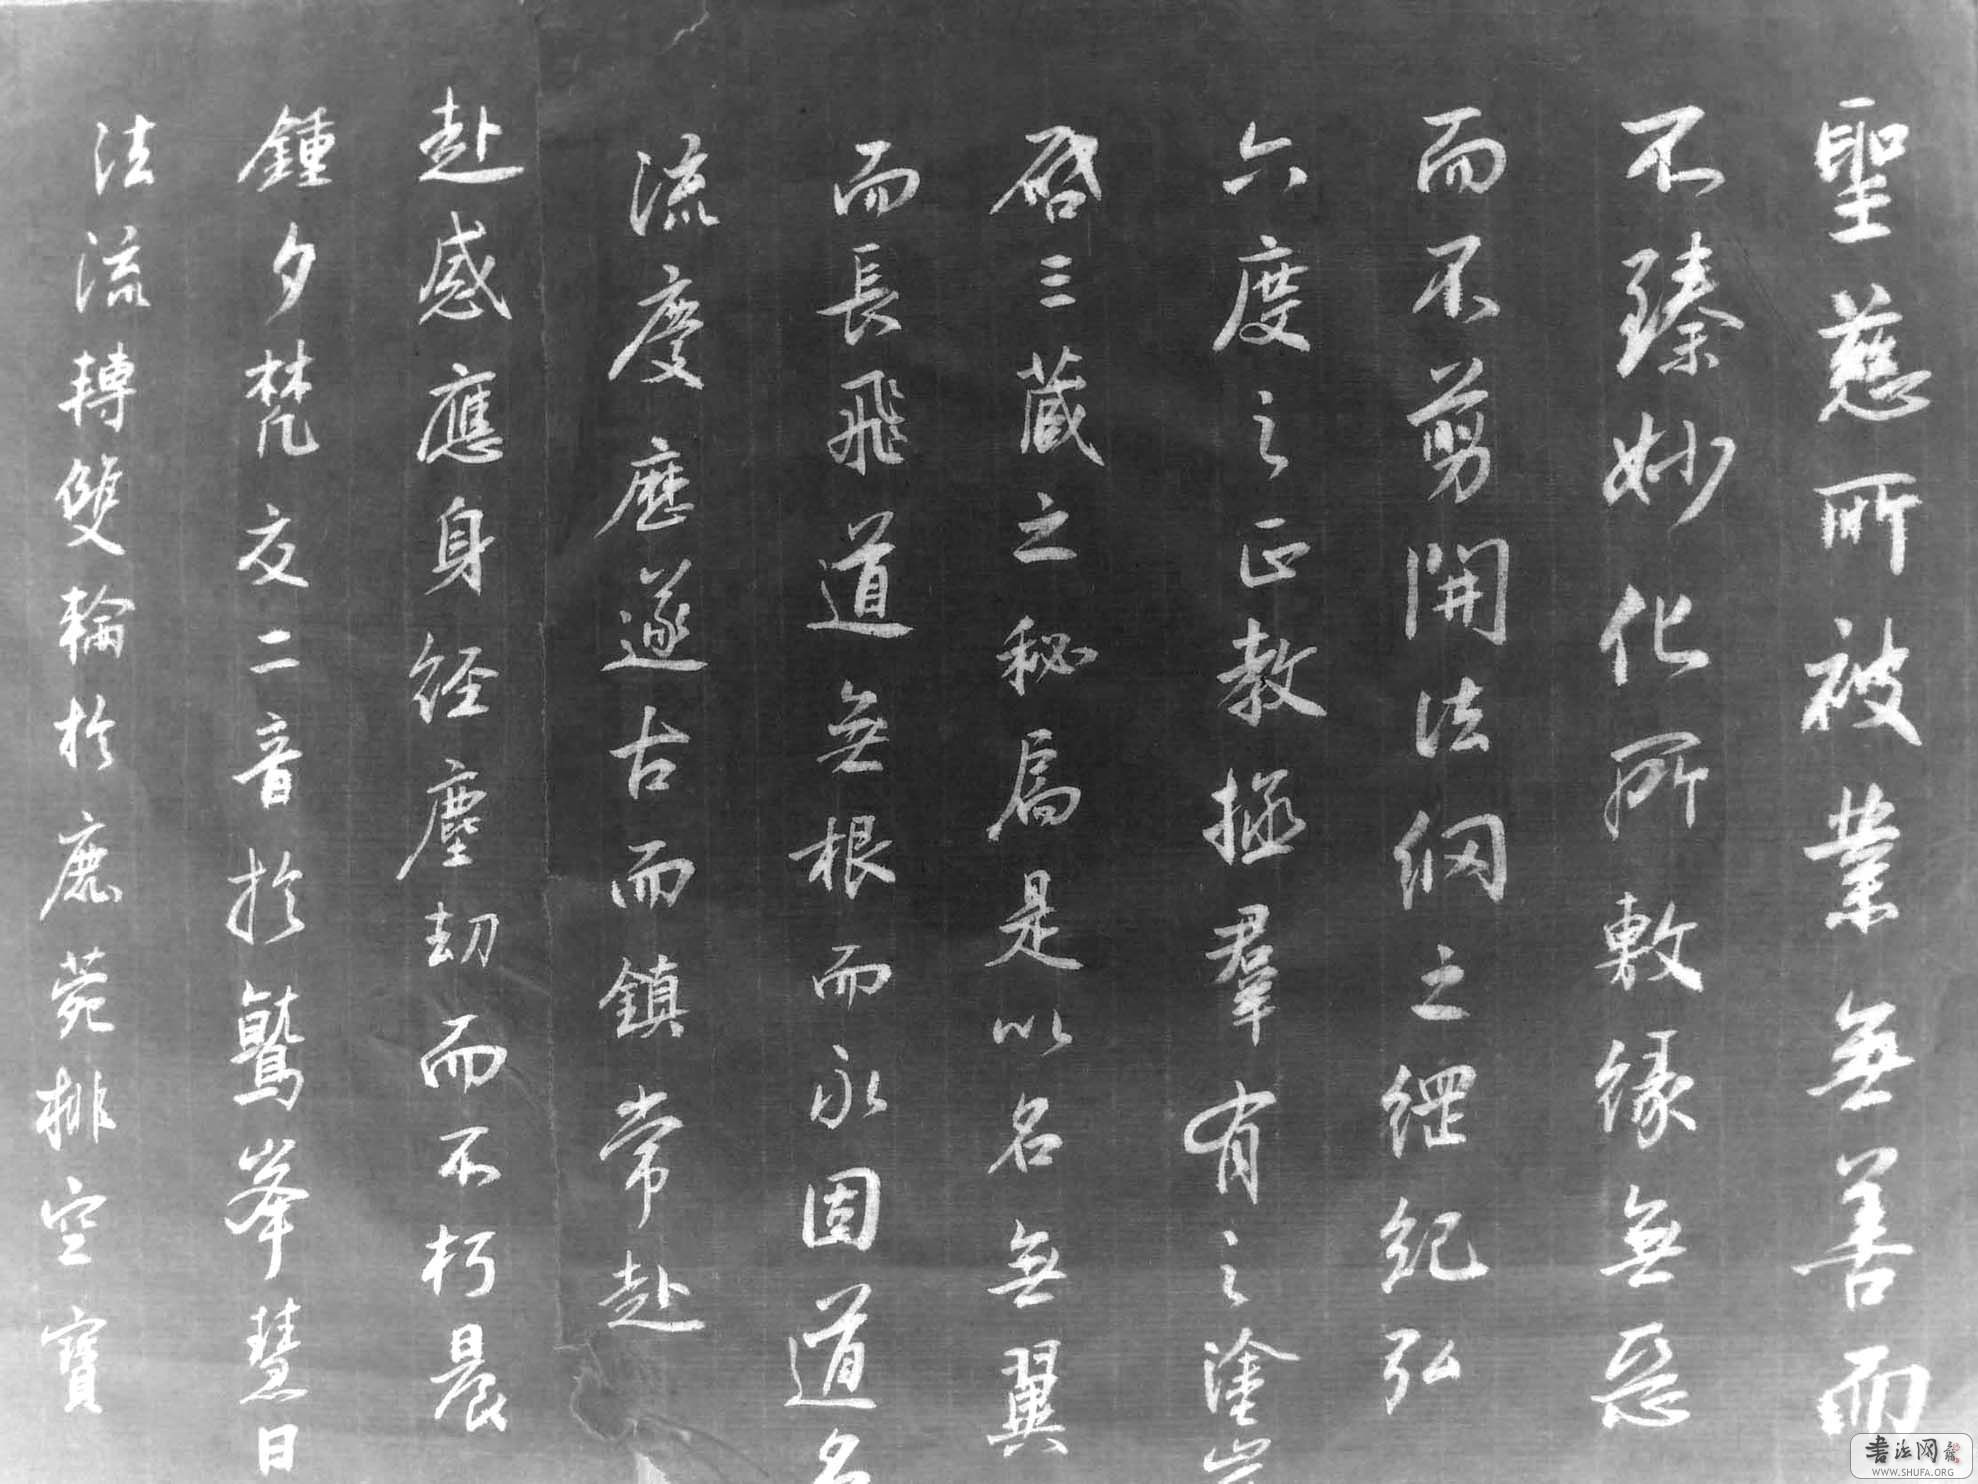 聖慈所被業無善而
不臻妙化所敷緣無惡
而不剪開法網之綱紀弘
六度之正教拯羣有之塗炭
啓三藏之秘扃是以名無翼
而長飛道無根而永固道名
流慶歷遂古而鎮常赴
赴感應身經塵劫而不朽晨
鍾夕梵交二音於鷲峯慧日
法流轉雙輪於鹿菀排空寶
书法网
WWW.SHUFA.ORG